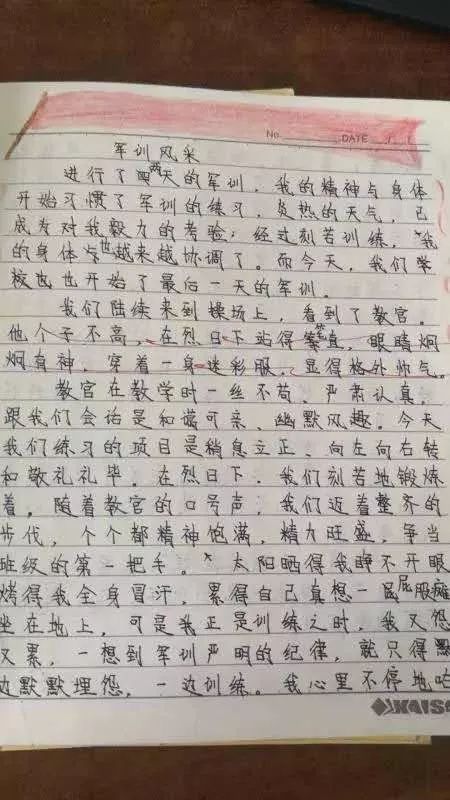 No. DATE / /
军训风采
进行了两天的军训，我的精神与身体
开始习惯了军训的练习，炎热的天气，已
成为对我毅力的考验；经过刻苦训练，我
的身体也越来越协调了。而今天，我们学
校也也开始了最后一天的军训。
我们陆续来到操场上，看到了教官。
他个子不高，在烈日下站得笔直，眼睛炯
炯有神，穿着一身迷彩服，显得格外帅气。
教官在教学时一丝不苟，严肃认真，
跟我们会话是和谒可亲，幽默风趣。今天
我们练习的项目是稍息立正、向左向右转
和敬礼礼毕。在烈日下，我们刻苦地锻炼
着。随着教官的口号声，我们迈着整齐的
步伐，个个都精神饱满，精力旺盛，争当
班级的第一把手。太阳晒得我睁不开眼
烤得我全身冒汗，累得自己真想一屁股瘫
坐在地上，可是我正是训练之时，我又怨
又累，一想到军训严明的纪律，就只得默
边默默埋怨，一边训练。我心里不停地咕
KAIS